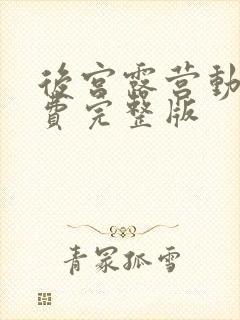 後宮露营動
費完整版
青冢孤雪